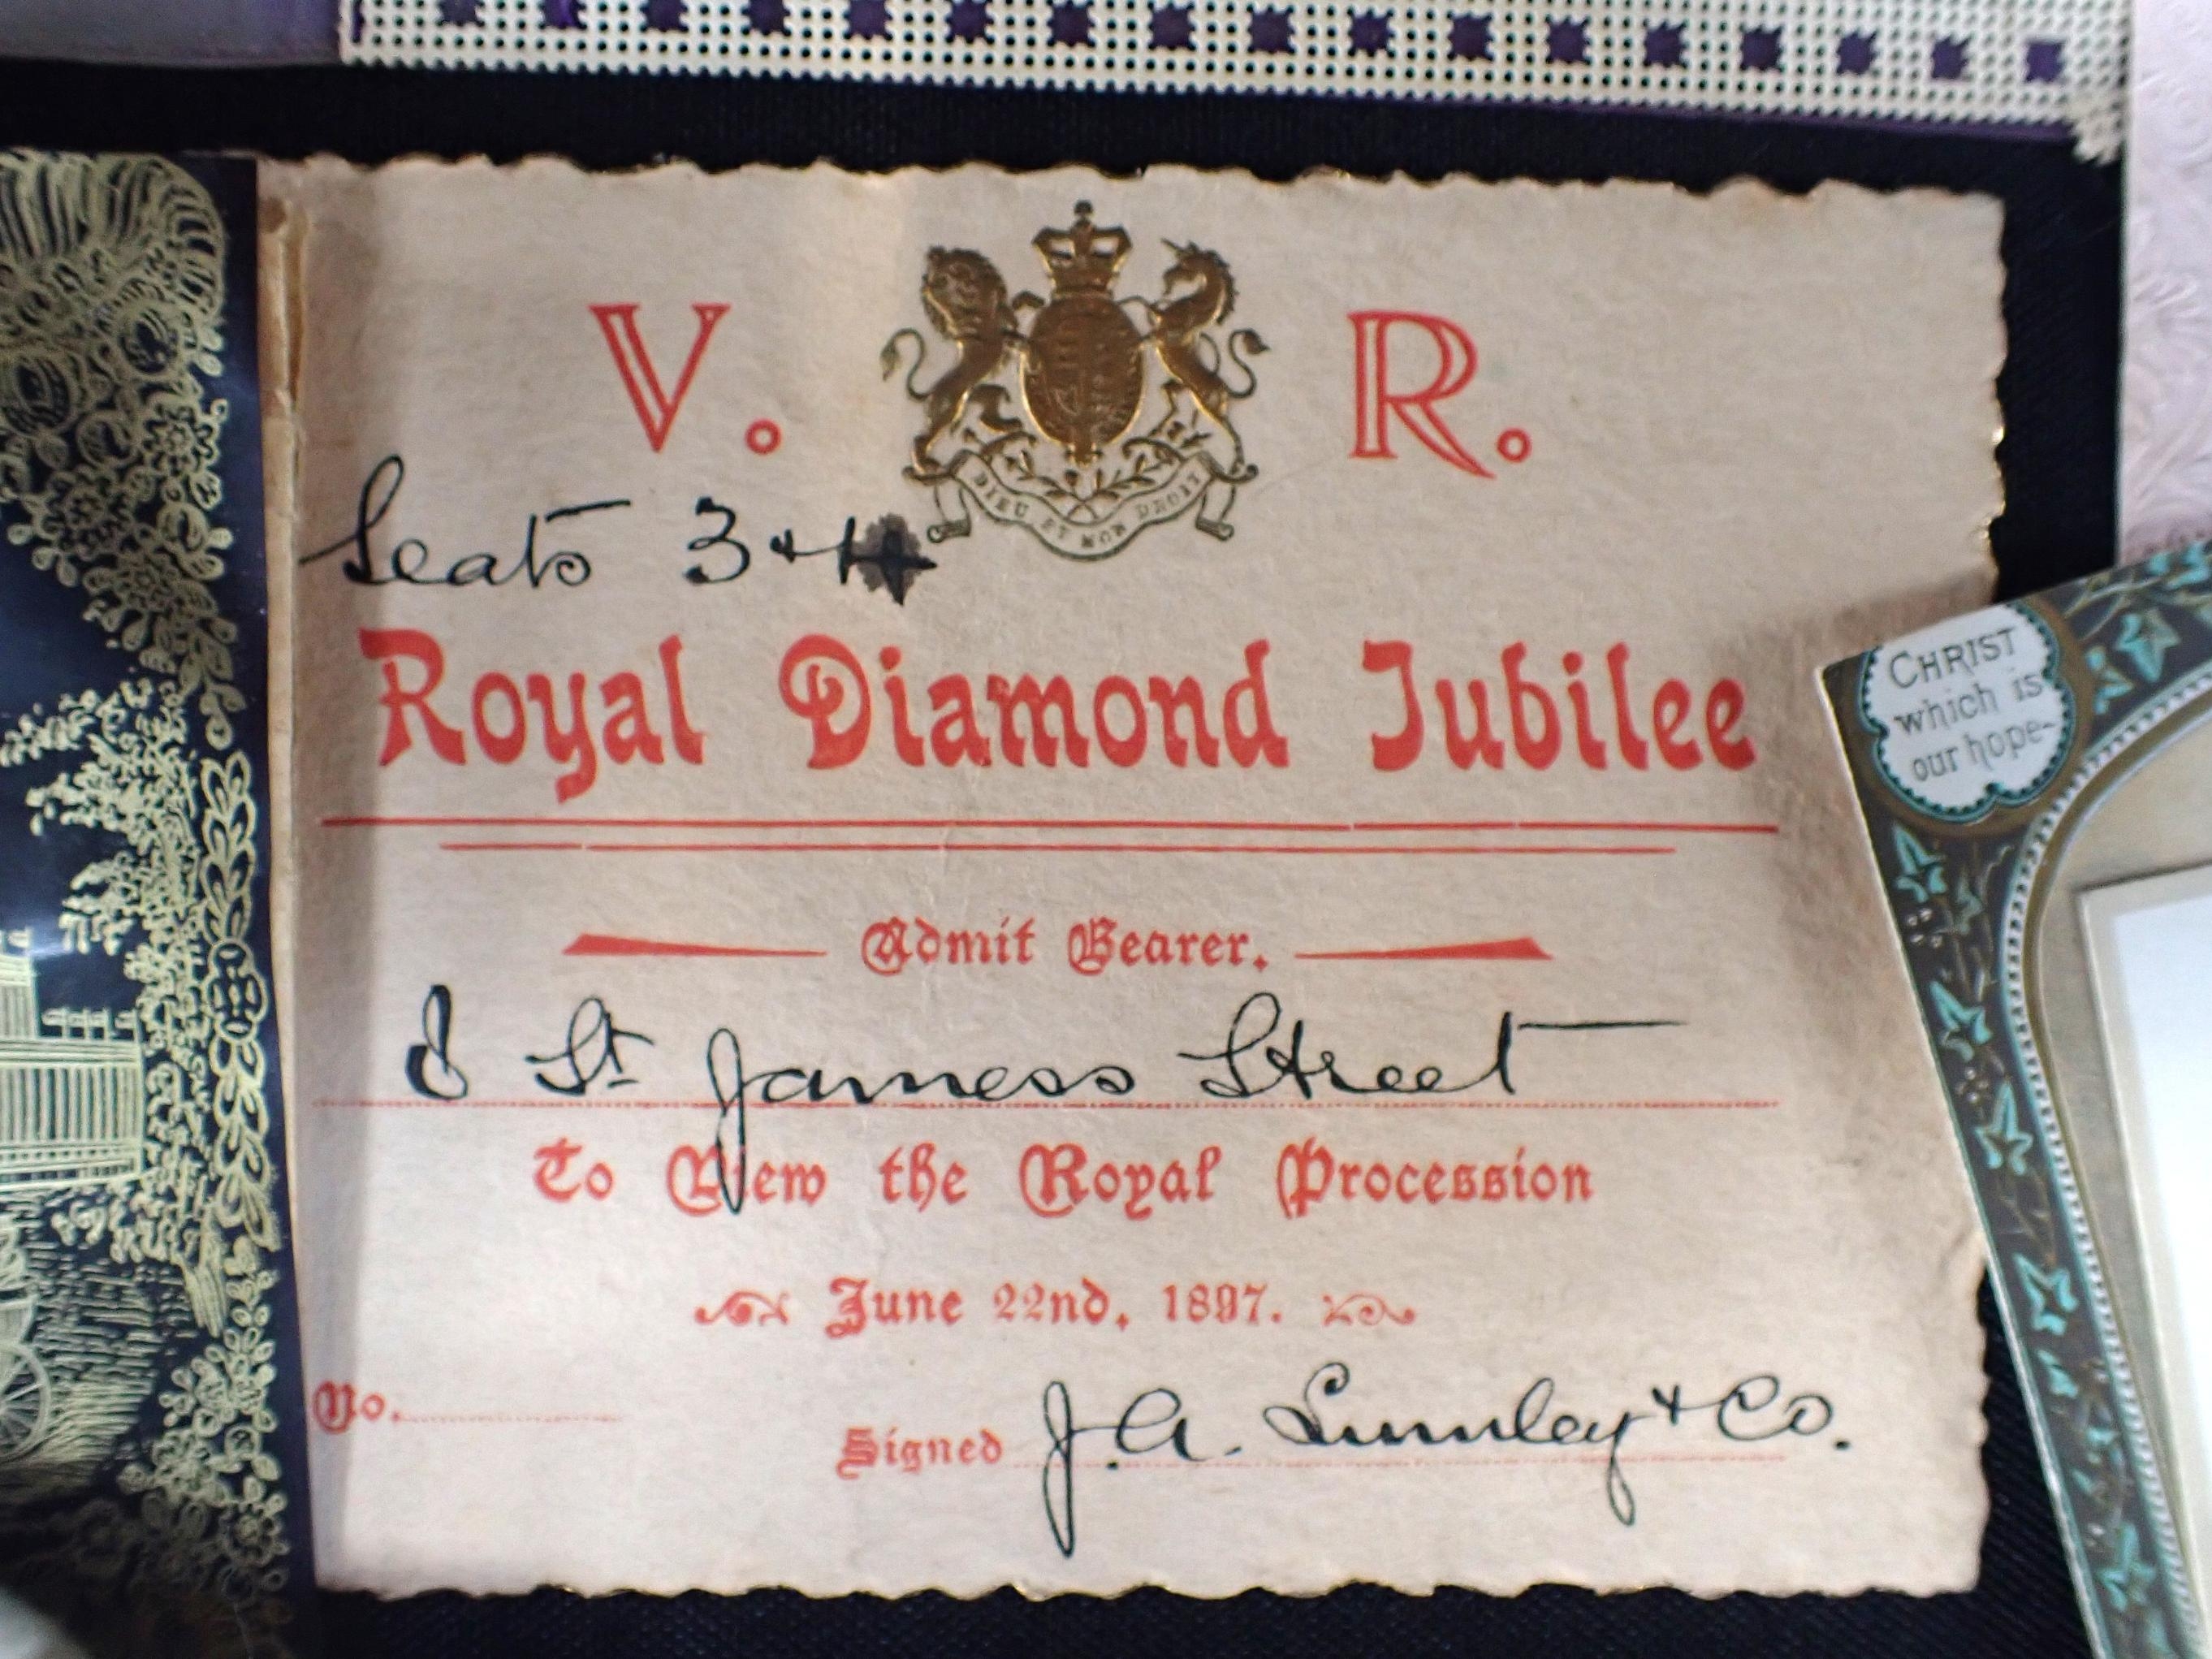 V. R.
DIEU ET MON DROIT
Seats 3 + 4
Royal Diamond Jubilee
Admit Bearer.
8 St Jamess Street
To View the Royal Procession
June 22nd, 1897.
No.
Signed J.A. Lumley + Co.
CHRIST
which is
our hope